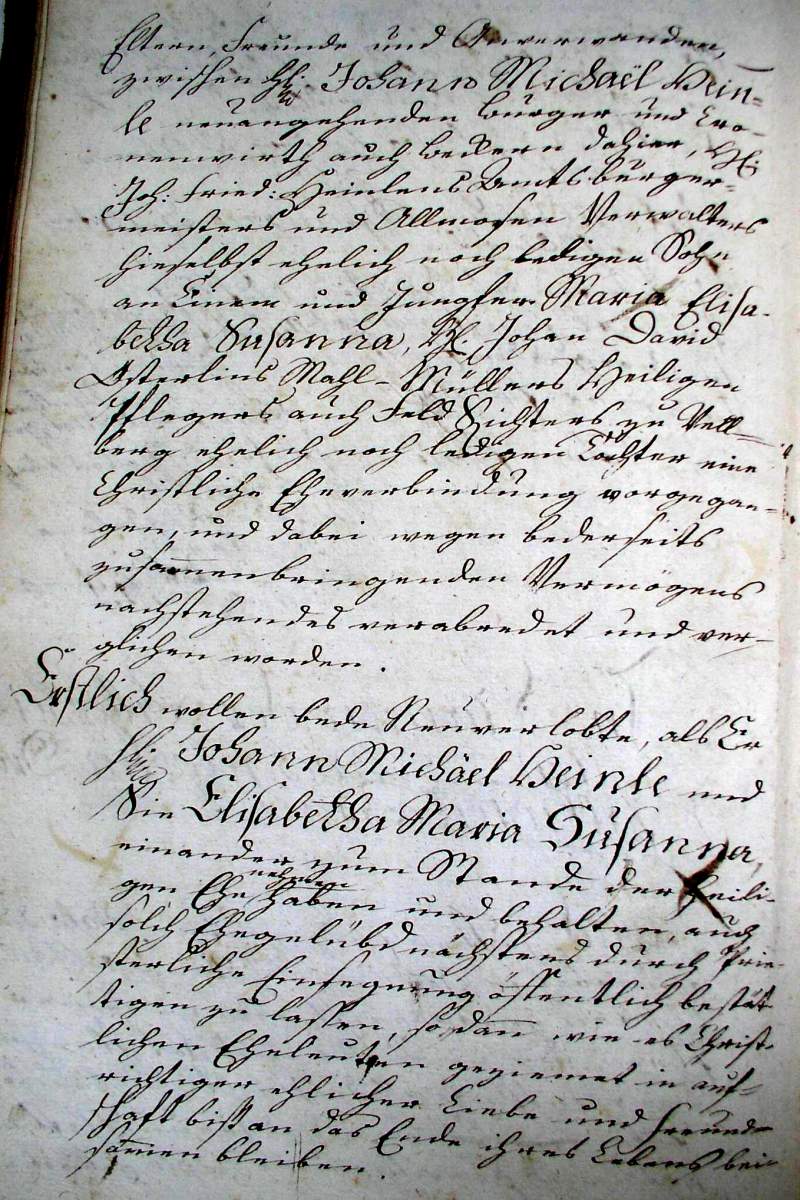 Eltern, Freunde und Anverwanden,
zwischen H: Johann Michaël Hein=
le neuangehenden burger und Cro-
nenwirth auch becken dahier, H:
Joh: Fried: Heinlens Amtsburger-
meisters und Allmosen Verwalters
hieselbst ehelich noch ledigen Sohn
an Einem und Jungfer Maria Elisa-
betha Susanna, H: Johan David
Osterlins Mahl-Müllers Heiligen
Pflegers auch Feld Richters zu Vell=
berg ehelich noch ledigen Tochter eine
Christliche Eheverbindung vorgegan-
gen, und dabei wegen bederseits
zusammenbringenden Vermögens
nachstehendes verabredet und ver-
glichen worden.
Erstlich wollen bede Neuverlobte, als Er
H: Johann Michäel Heinle und
Sie Elisabetha Maria Susanna,
einander zum Stande der heili-
gen Ehe nehmen haben und behalten, auch
solch Ehegelübd nächstens durch Prie-
sterliche Einsegnung öffentlich bestät-
tigen zu lassen, sodann wie es Christ-
lichen Eheleuten geziemet in auf-
richtiger ehlicher Liebe und Freund-
schaft biß an das Ende ihres Lebens bei-
sammen bleiben.